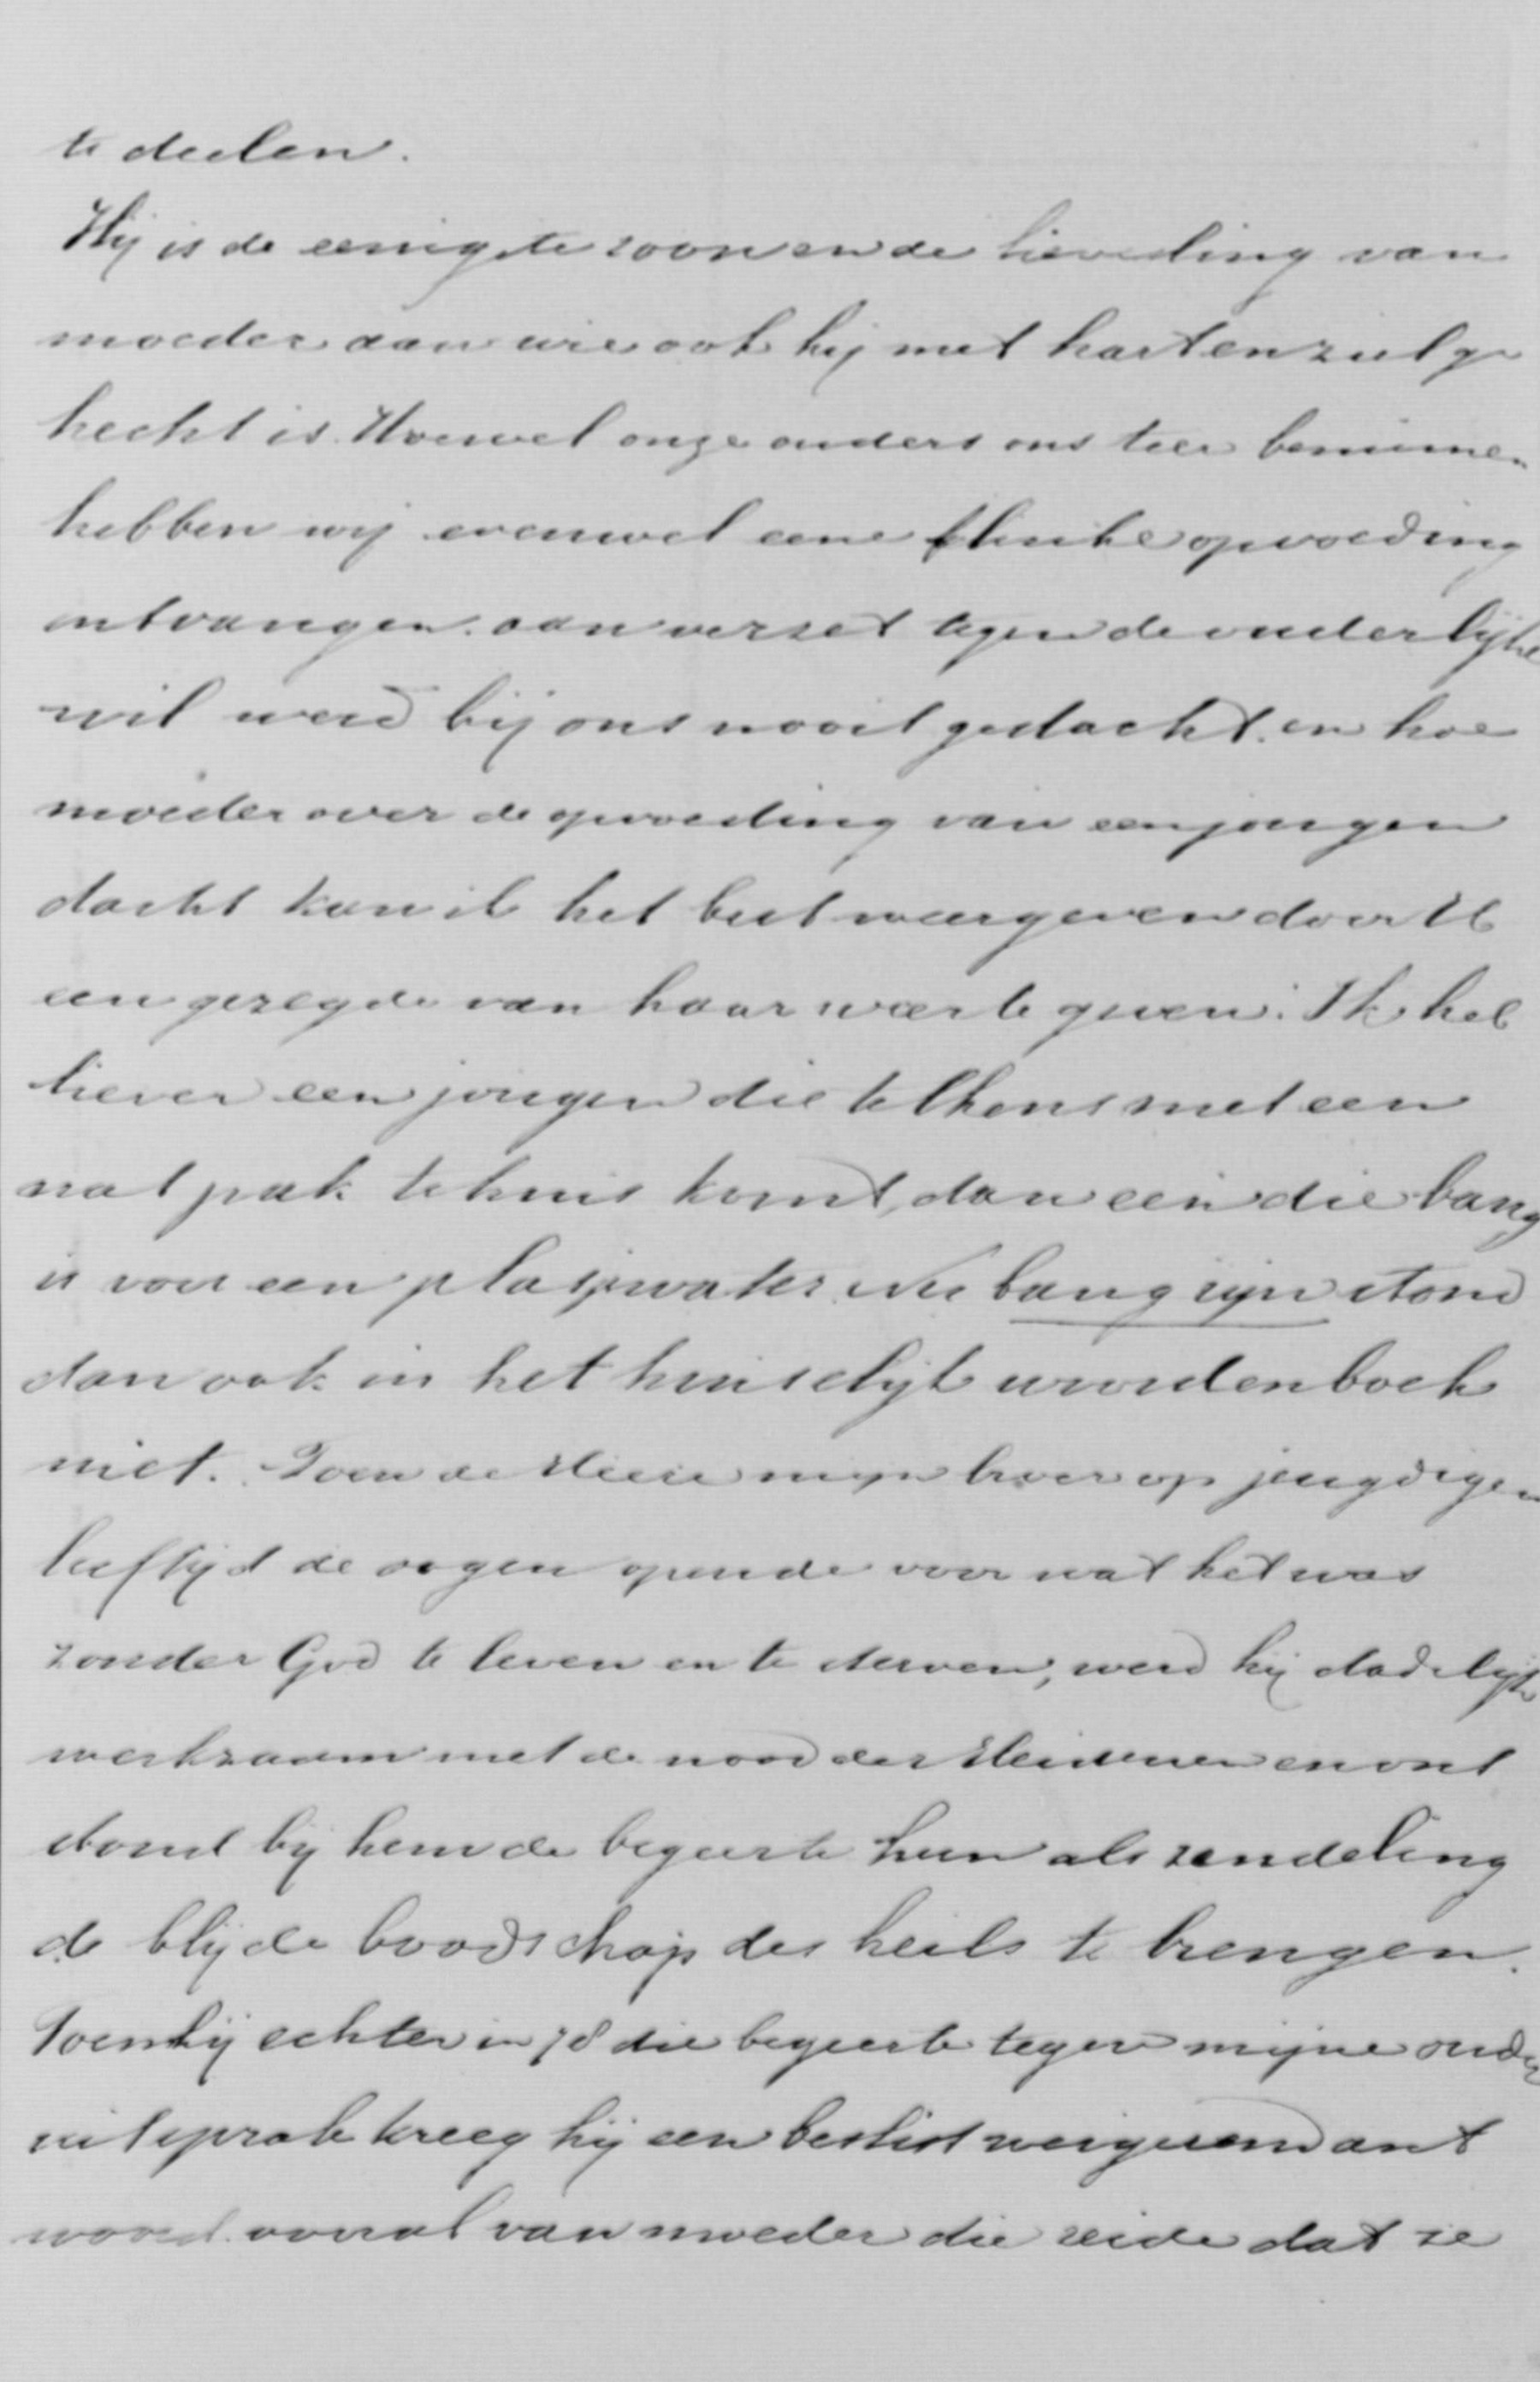 te deelen.
Hij is de eenigste zoon en de lieveling van
moeder aan wie ook hij met hart en ziel ge
hecht is. Hoewel onze ouders ons teer beminnen
hebben wij evenwel eene flinke opvoeding
ontvangen. aan verzet tegen de ouderlijke
wil werd bij ons nooit gedacht. en hoe
moeder over de opvoeding van een jongen
dacht kan ik het best weergeven door U
een gezegde van haar weer te geven: Ik heb
liever een jongen die telkens met een
nat pak tehuis komt, dan een die bang
is voor een plasje water. Nu bang zijn stond
dan ook in het huiselijk woordenboek
niet. Toen de Heere mijn broer op jeugdigen
leeftijd de oogen opende voor wat het was
zonder God te leven en te sterven, werd hij dadelijk
werkzaam met de nood der Heidenen en ont
stond bij hem de begeerte hun als zendeling
de blijde boodschap des heils te brengen.
Toen hij echter in 98 die begeerte tegen mijne ouders
uitsprak kreeg hij een beslist weigerend ant
woord. vooral van moeder die zeide dat ze